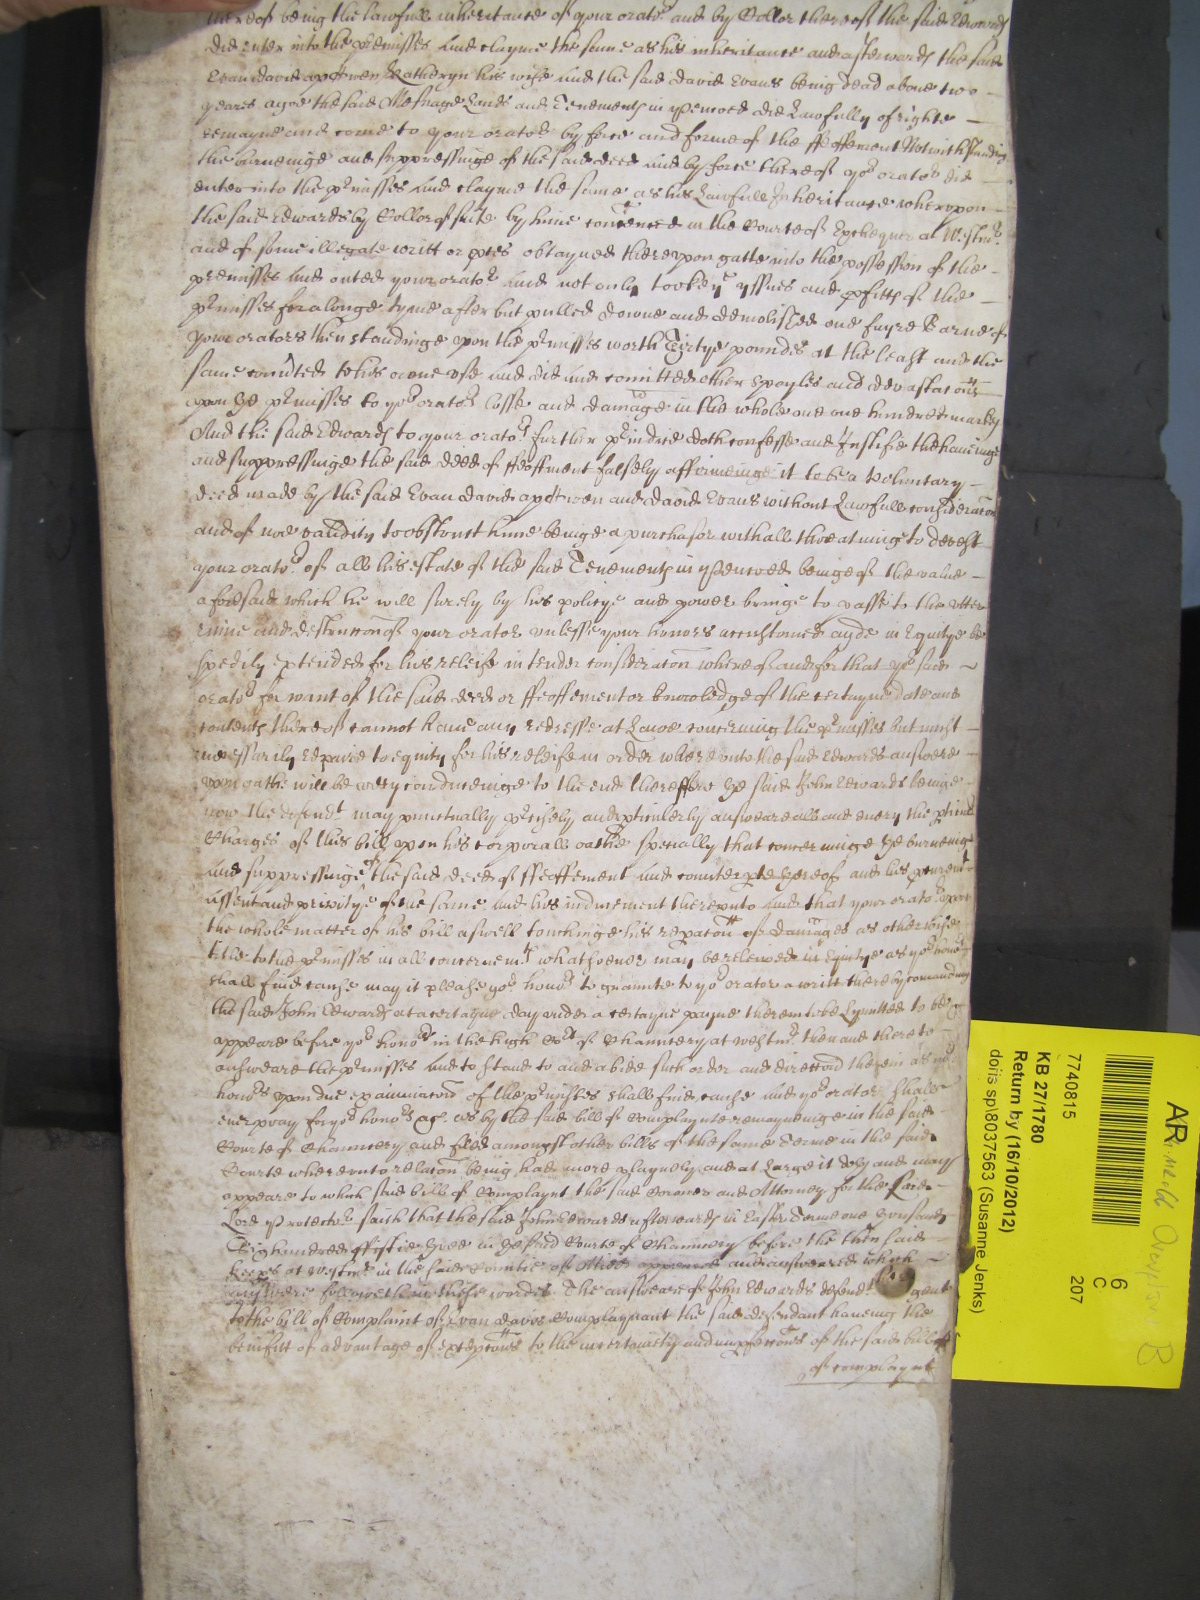 thereof being the lawfull inheritance of your orato:r and by Collor thereof the said Edwards
did enter into the p:rmisses and clayme the same as his inheritance and afterwards the said
Evan david ap Owen Katheryn his wife and the said david Evans being dead above two
yeares agoe the said Messuage Lands and Tenements in Penrced did Lawfully of righte
remayne and come to your orato:r by force and forme of the ffeoffement Notwithstanding
the burneinge and suppressinge of the said deed and by force thereof yo:r orato:r did
enter into the p:rmisses and clayme the same as his Lawfull Inheritance wherupon
the said Edwards by Collor of suite by hime in the Courte of Exchequer at Westm:r
and of some illegale writt or obtayned thereupon gatte into the possession of the
premisses and outed your orato:r and not only tooke y:e yssues and pfitts of the
p:rmisses for a longe tyme after but pulled downe and demolished one fayre Barne of
your orators then standinge upon the p:rmisses worth Thirtye poundes at the least and the
same to his owne use and did and comitted other spoyles and devastatons
upon ye p:rmisses to yo:r orato:rs losse and damage in the whole one one hundred markes
And the said Edwards to your orato:rs further p:riudice doth confesse and Justifie the haueinge
and suppressinge the said deed of ffeoffment falsely affirmeinge it to be a voluntary
deed made by the said Evan david ap Owen and david Evans without Lawfull consideracon
and of noe validity to obstruct hime beinge a purchasor withall threatning to devest
your orato:r of all his estate of the said Tenements in beinge of the value
aforesaid which he will surely by his pollicye and power bringe to passe to the utter
ruine and destruccon of your orator unlesse your honors accustomed ayde in Equitye be
spedily extended for his releife in tender consideracon whereof and for that yo:r said
orato:r for want of the said deed or ffeoffement or knowledge of the certayne date and
contents thereof cannot have any redresse at Lawe concerning the p:rmisses but must
necessarily repaire to equity for his releife in order whereunto the said Edwards answere
upon oathe will be very conduceinge to the end therefore ye said John Edwards beinge
now the defend:t may punctually p:rcisely and pticulerly answeare all and every the
Charges of this bill upon his corporall oathe specially that concerninge ye burneinge
and suppressinge of the said deed of ffeoffement and counterpte thereof and his
assent and privitye of the same and his inducement thereunto and that your orato:r upon
the whole matter of his bill aswell touchinge his repacon of damages as otherwise
title to the p:rmisses in all concernem:ts whatsoever may be releeved in Equitye as yo:r hono:rs
shall finde cause may it please yo:r hono:rs to graunte to yo:r orator a writt thereby comanding
the said John Edwards at a certayne day under a certayne payne therein to be Lymitted to be
appeare before yo:r hono:rs in the high Co:rt of Chauncery at Westm:r then and there to
answeare the p:rmisses and to stand to and abide such order and direccon therein as yo:r
hono:rs upon due examinacon of the p:rmisses shall finde cause and yo:r orator shall
ever pray for yo:r hono:rs &c. as by the said bill of Complaynte remayneinge in the said
Courte of Chauncery and filed amongst other bills of the same Terme in the said
Courte whereunto relacon being had more playnely and at Large it doth and may
appeare to which said bill of Complaynt the said Coroner and Attorney for the said
Lord Protecto:r saith that the said John Edwards afterwards in Easter Terme one thousand
Six hundred ffiftie three in ye said Courte of Chauncery before the then said
keepers at Westm:r in the said Countie of Midd: appeared and answeared which
answeare followeth in these wordes The answeare of John Edwards defend:t
to the bill of Complaint of Evan davis Complaynant the said defendant haueing the
benifitt of advantage of excepcons to the incertainety and impfeccons of the said bill
of complaynt
7740815
KB 27/1780
Return by (16/10/2012)
doris sp\8037563 (Susanne Jenks)
6
C
207
AR
B